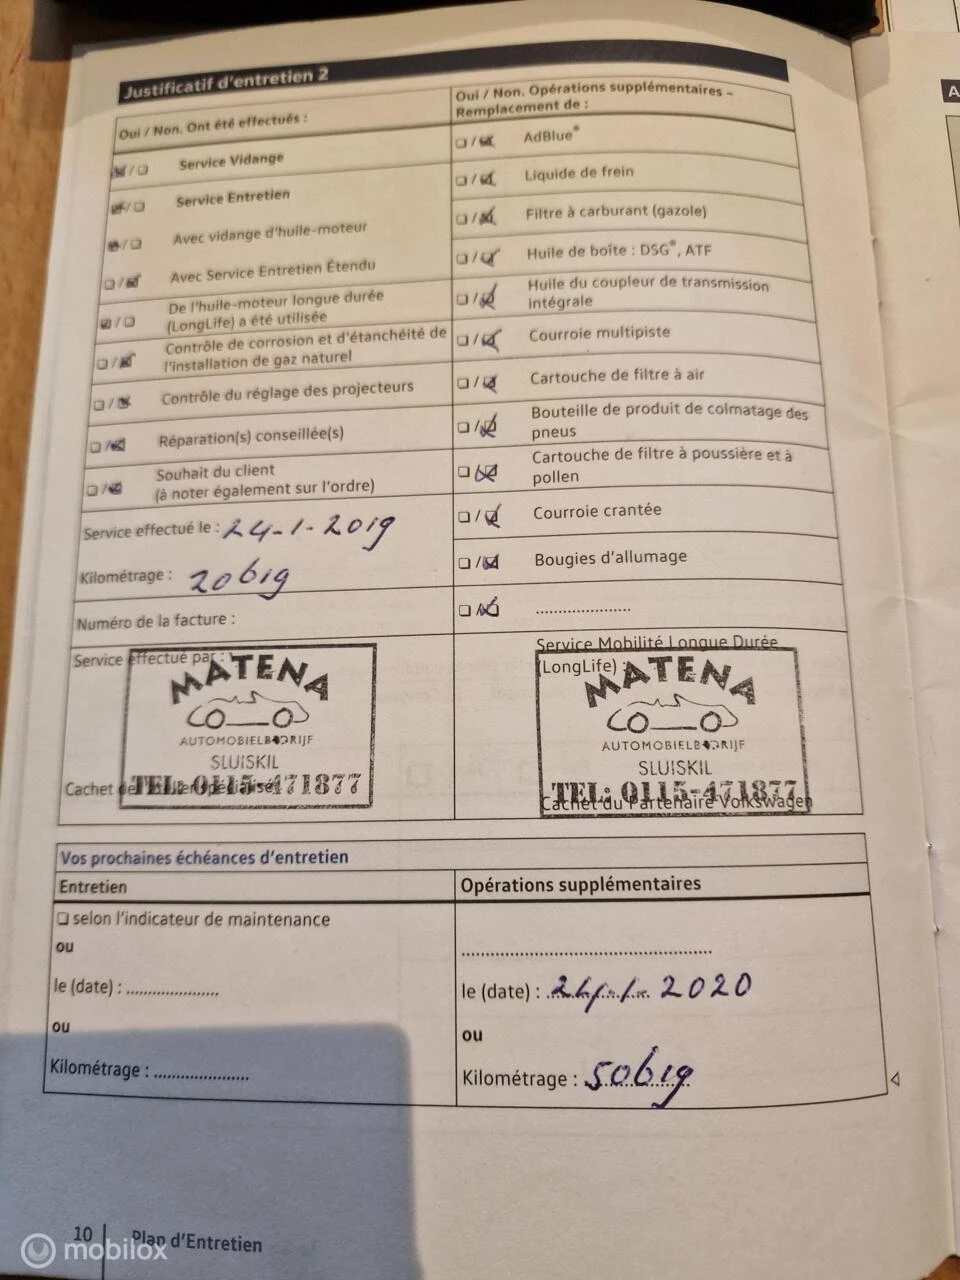 Justificatif d'entretien 2
Oui / Non. Ont été effectués :
Service Vidange
Service Entretien
Avec vidange d'huile-moteur
Avec Service Entretien Étendu
De l'huile-moteur longue durée
(LongLife) a été utilisée
Contrôle de corrosion et d'étanchéité de
l'installation de gaz naturel
Contrôle du réglage des projecteurs
Réparation(s) conseillée(s)
Souhait du client
(à noter également sur l'ordre)
Service effectué le : 24-1-2019
Kilométrage : 20619
Numéro de la facture :
Oui / Non. Opérations supplémentaires –
Remplacement de :
AdBlue®
Liquide de frein
Filtre à carburant (gazole)
Huile de boîte : DSG®, ATF
Huile du coupleur de transmission
intégrale
Courroie multipiste
Cartouche de filtre à air
Bouteille de produit de colmatage des
pneus
Cartouche de filtre à poussière et à
pollen
Courroie crantée
Bougies d'allumage
.....................
Service effectué par :
MATENA
AUTOMOBIELBEDRIJF
SLUISKIL
TEL: 0115-471877
Cachet de
Service Mobilité Longue Durée
(LongLife) :
MATENA
AUTOMOBIELBEDRIJF
SLUISKIL
TEL: 0115-471877
Cachet du Partenaire Volkswagen
Vos prochaines échéances d'entretien
Entretien
selon l'indicateur de maintenance
ou
le (date) : .....................
ou
Kilométrage : .....................
Opérations supplémentaires
.....................
le (date) : 24-1-2020
ou
Kilométrage : 50619
10 | Plan d'Entretien
mobilox
A